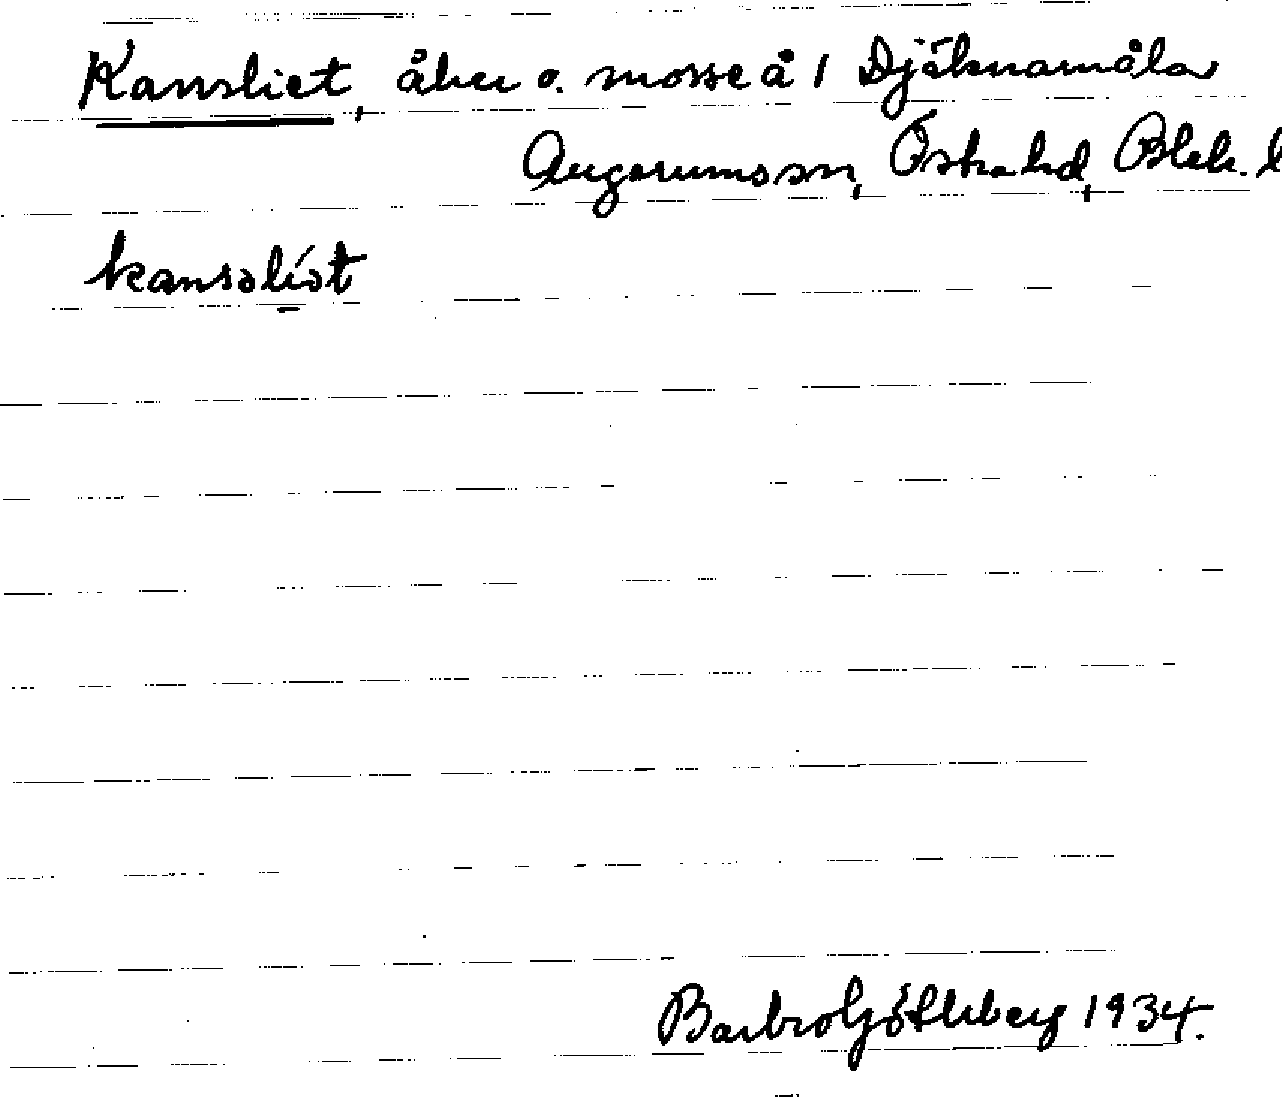 Kansliet, åker o. mosse å 1 Djäknamåla
Augerumssn, Östra hd, Blek. l
kansəlíət
Barbro Götheberg 1934.